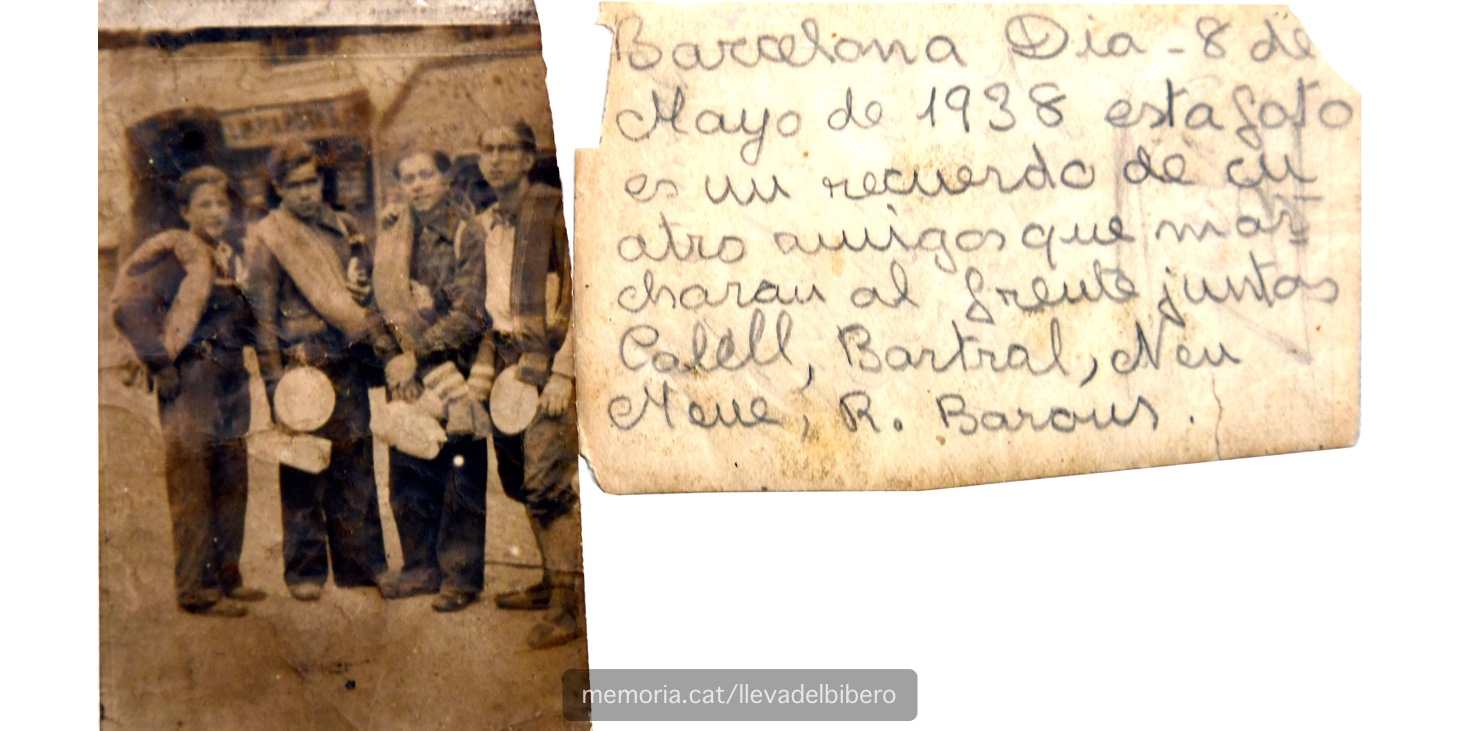 Barcelona Dia - 8 de
Mayo de 1938 esta foto
es un recuerdo de cu
atro amigos que mar-
charan al frente juntos
Calell, Bartral, Neu
Mene, R. Barous.
memoria.cat/llevadelbibero